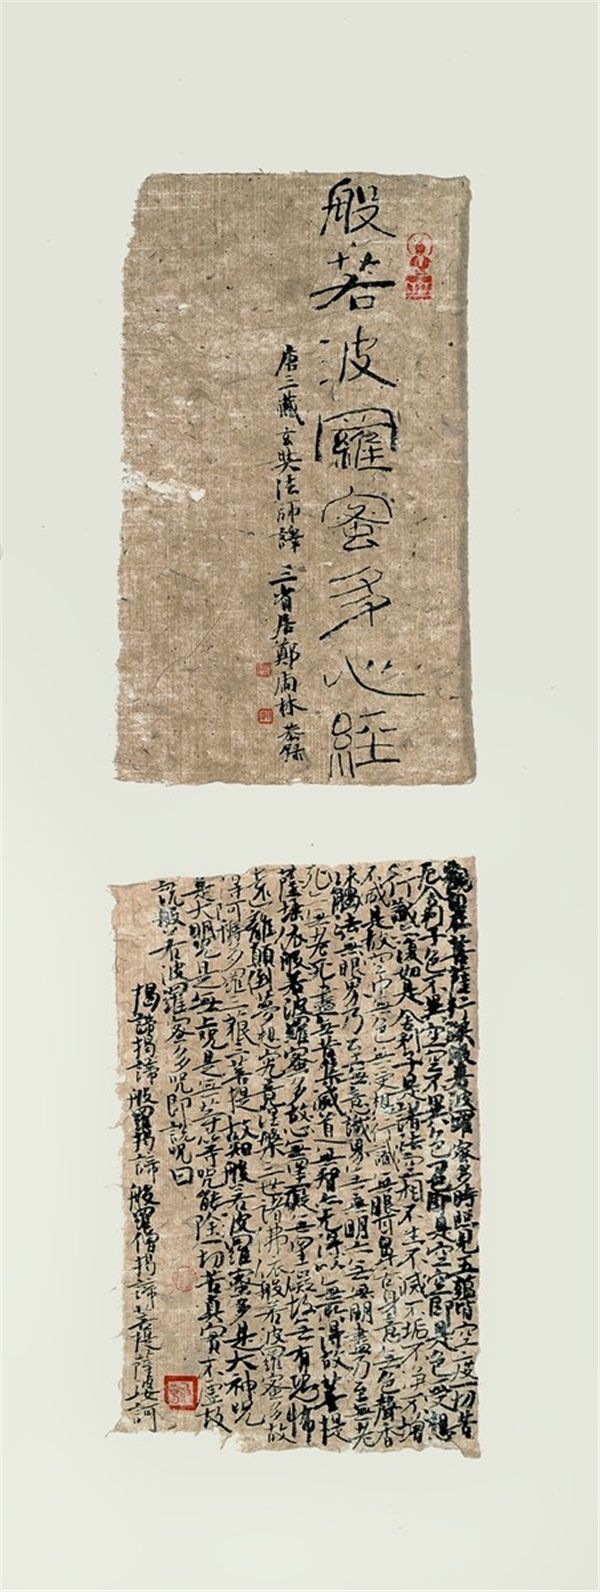 般若波羅蜜多心經
唐三藏玄奘法師譯 三省居鄭林恭録
觀自在菩薩行深般若波羅蜜多時照見五蘊皆空度一切苦
厄舍利子色不異空空不異色色即是空空即是色受想
行識亦復如是舍利子是諸法空相不生不滅不垢不淨不增
不減是故空中無色無受想行識無眼耳鼻舌身意無色聲香
味觸法無眼界乃至無意識界無無明亦無無明盡乃至無老
死亦無老死盡無苦集滅道無智亦無得以無所得故菩提
薩埵依般若波羅蜜多故心無罣礙無罣礙故無有恐怖
遠離顛倒夢想究竟涅槃三世諸佛依般若波羅蜜多故
得阿耨多羅三藐三菩提故知般若波羅蜜多是大神咒
是大明咒是無上咒是無等等咒能除一切苦真實不虛故
說般若波羅蜜多咒即說咒曰
揭諦揭諦般羅揭諦般羅僧揭諦菩提薩婆訶